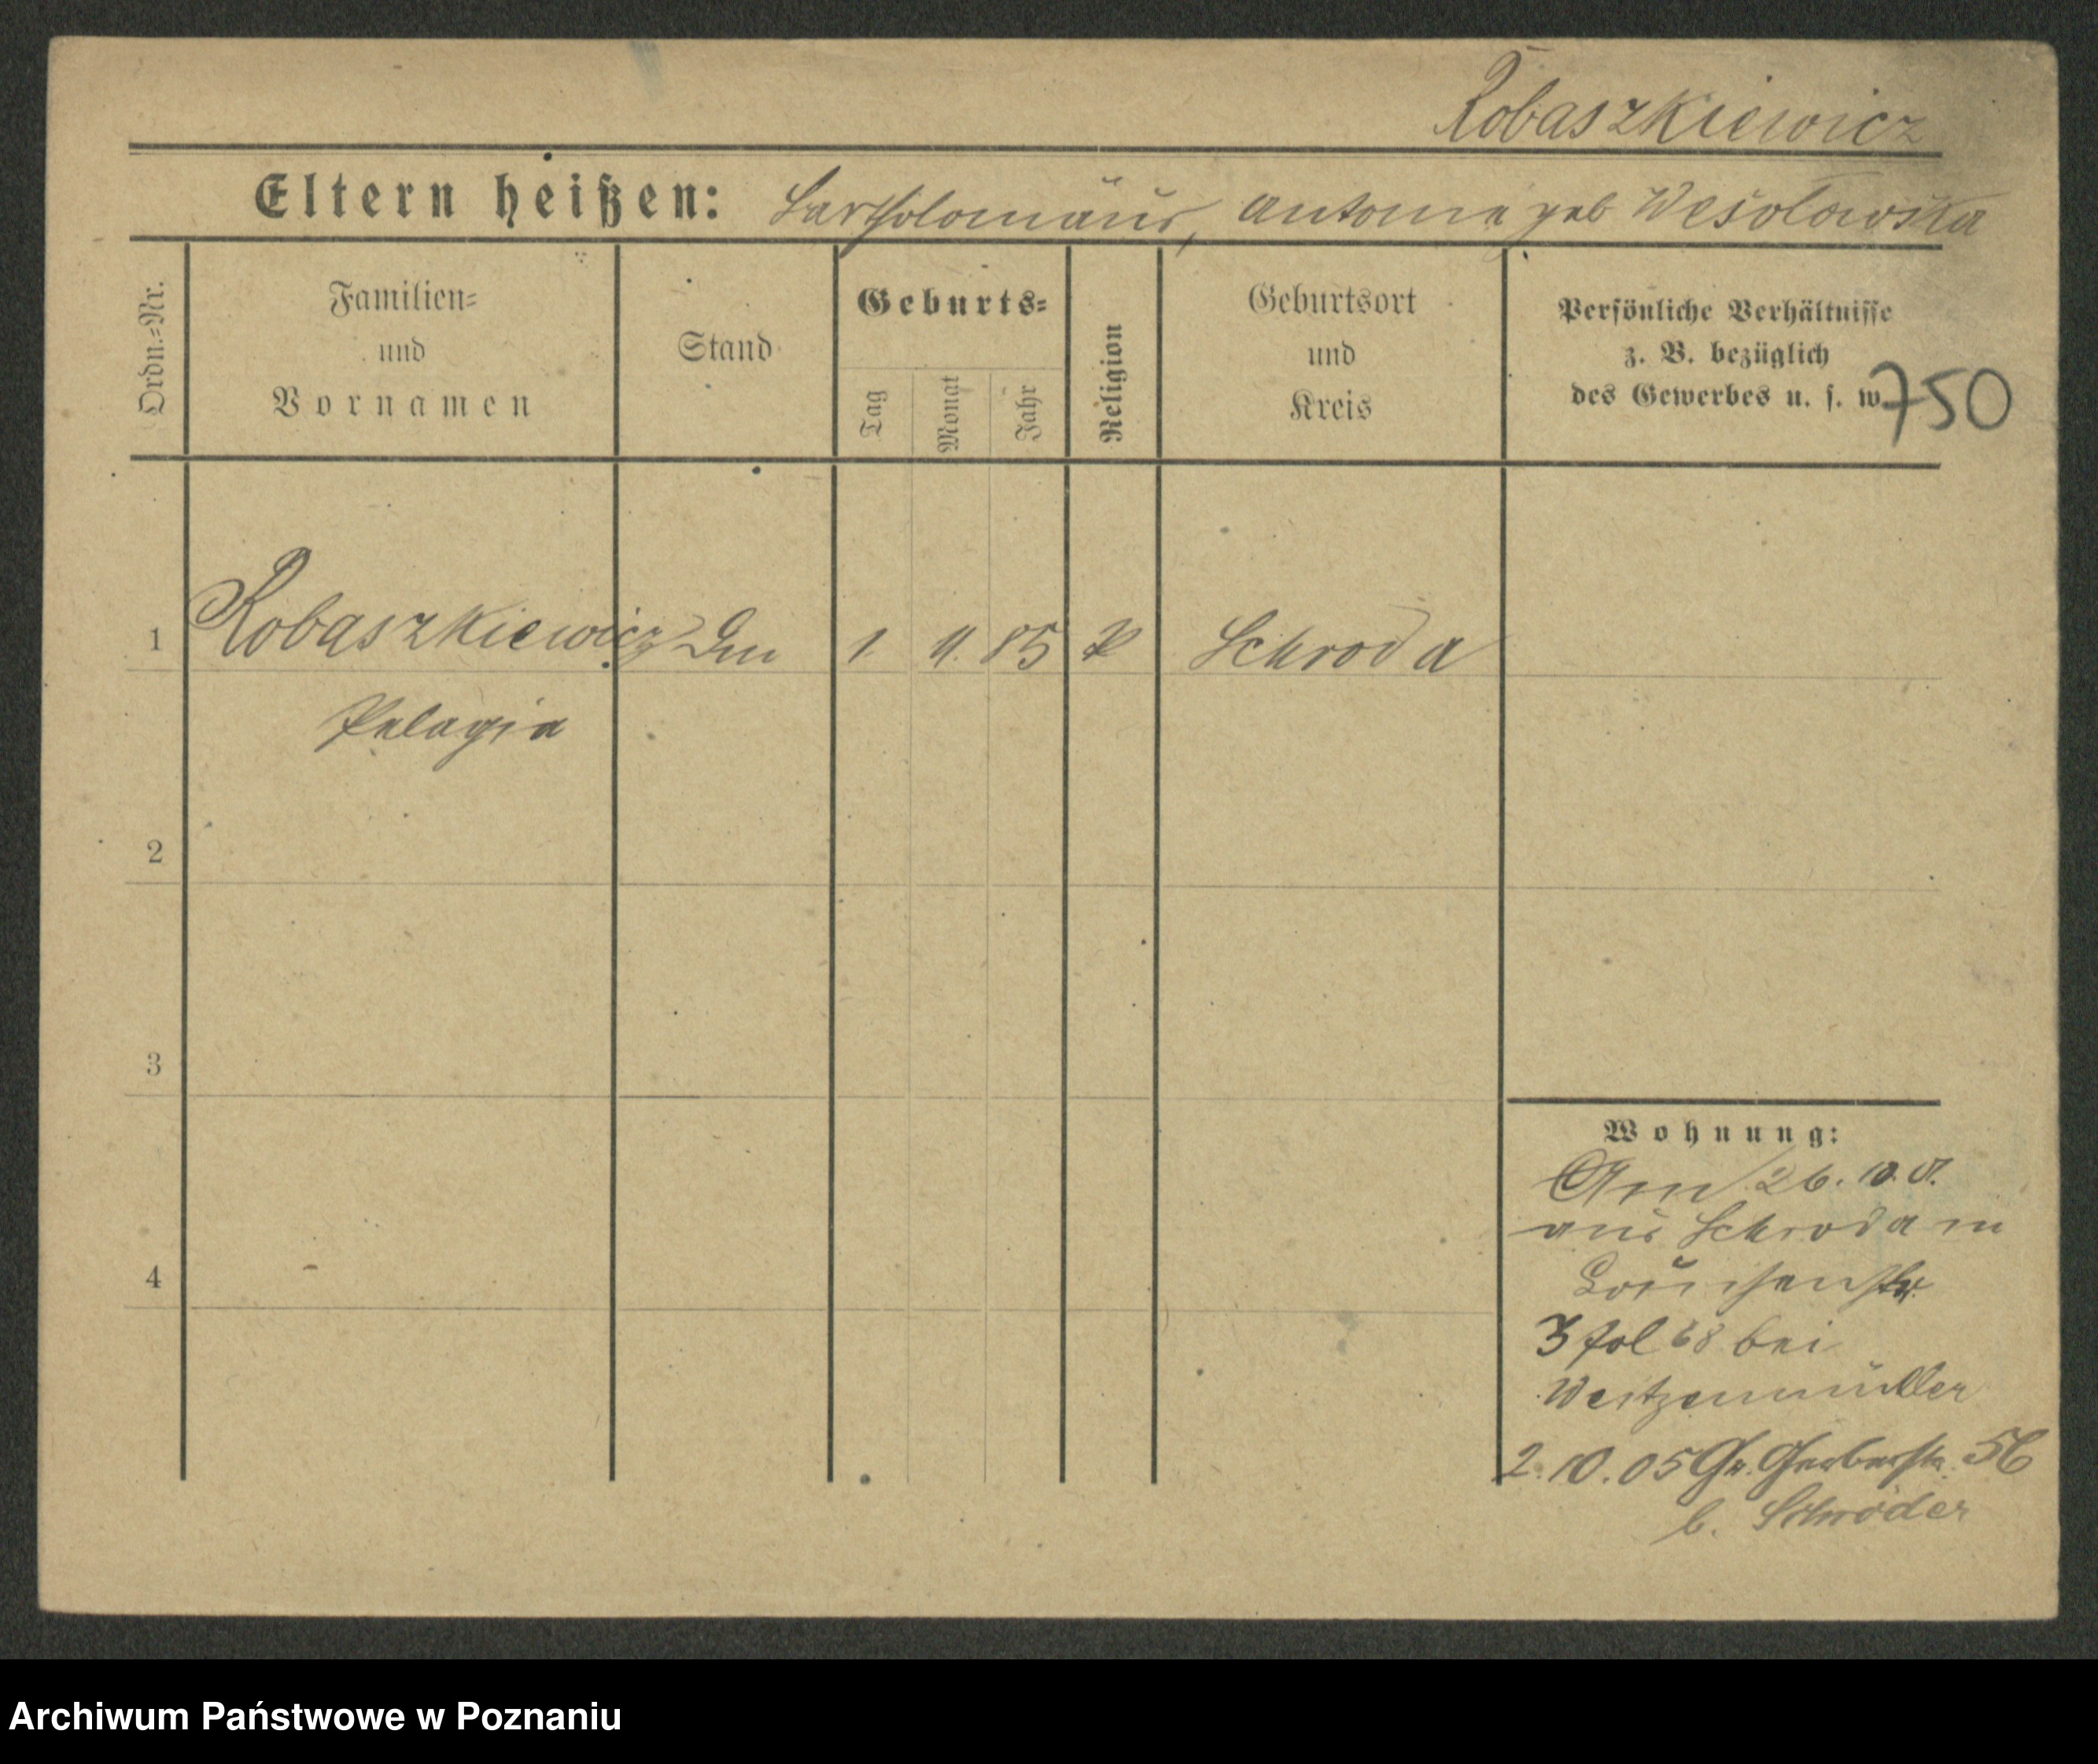 Robaszkiewicz
Eltern heißen: Bartholomäus, Antonie geb Wesolowska
Ordn.=Nr.
Familien=
und
Vornamen
Stand
Geburts=
Tag
Monat
Jahr
Religion
Geburtsort
und
Kreis
Persönliche Verhältnisse
z. B. bezüglich
des Gewerbes u. s. w.
750
1 Robaszkiewicz 1. 85 Schroda
Pelagia
2
3
4
Wohnung:
Am 26. 10.
aus Schroda in
Louisenstr.
3 fol 68 bei
Weitzenmüller
2. 10. 05 Gr. Gerberstr. 56
b. Schröder
Archiwum Państwowe w Poznaniu